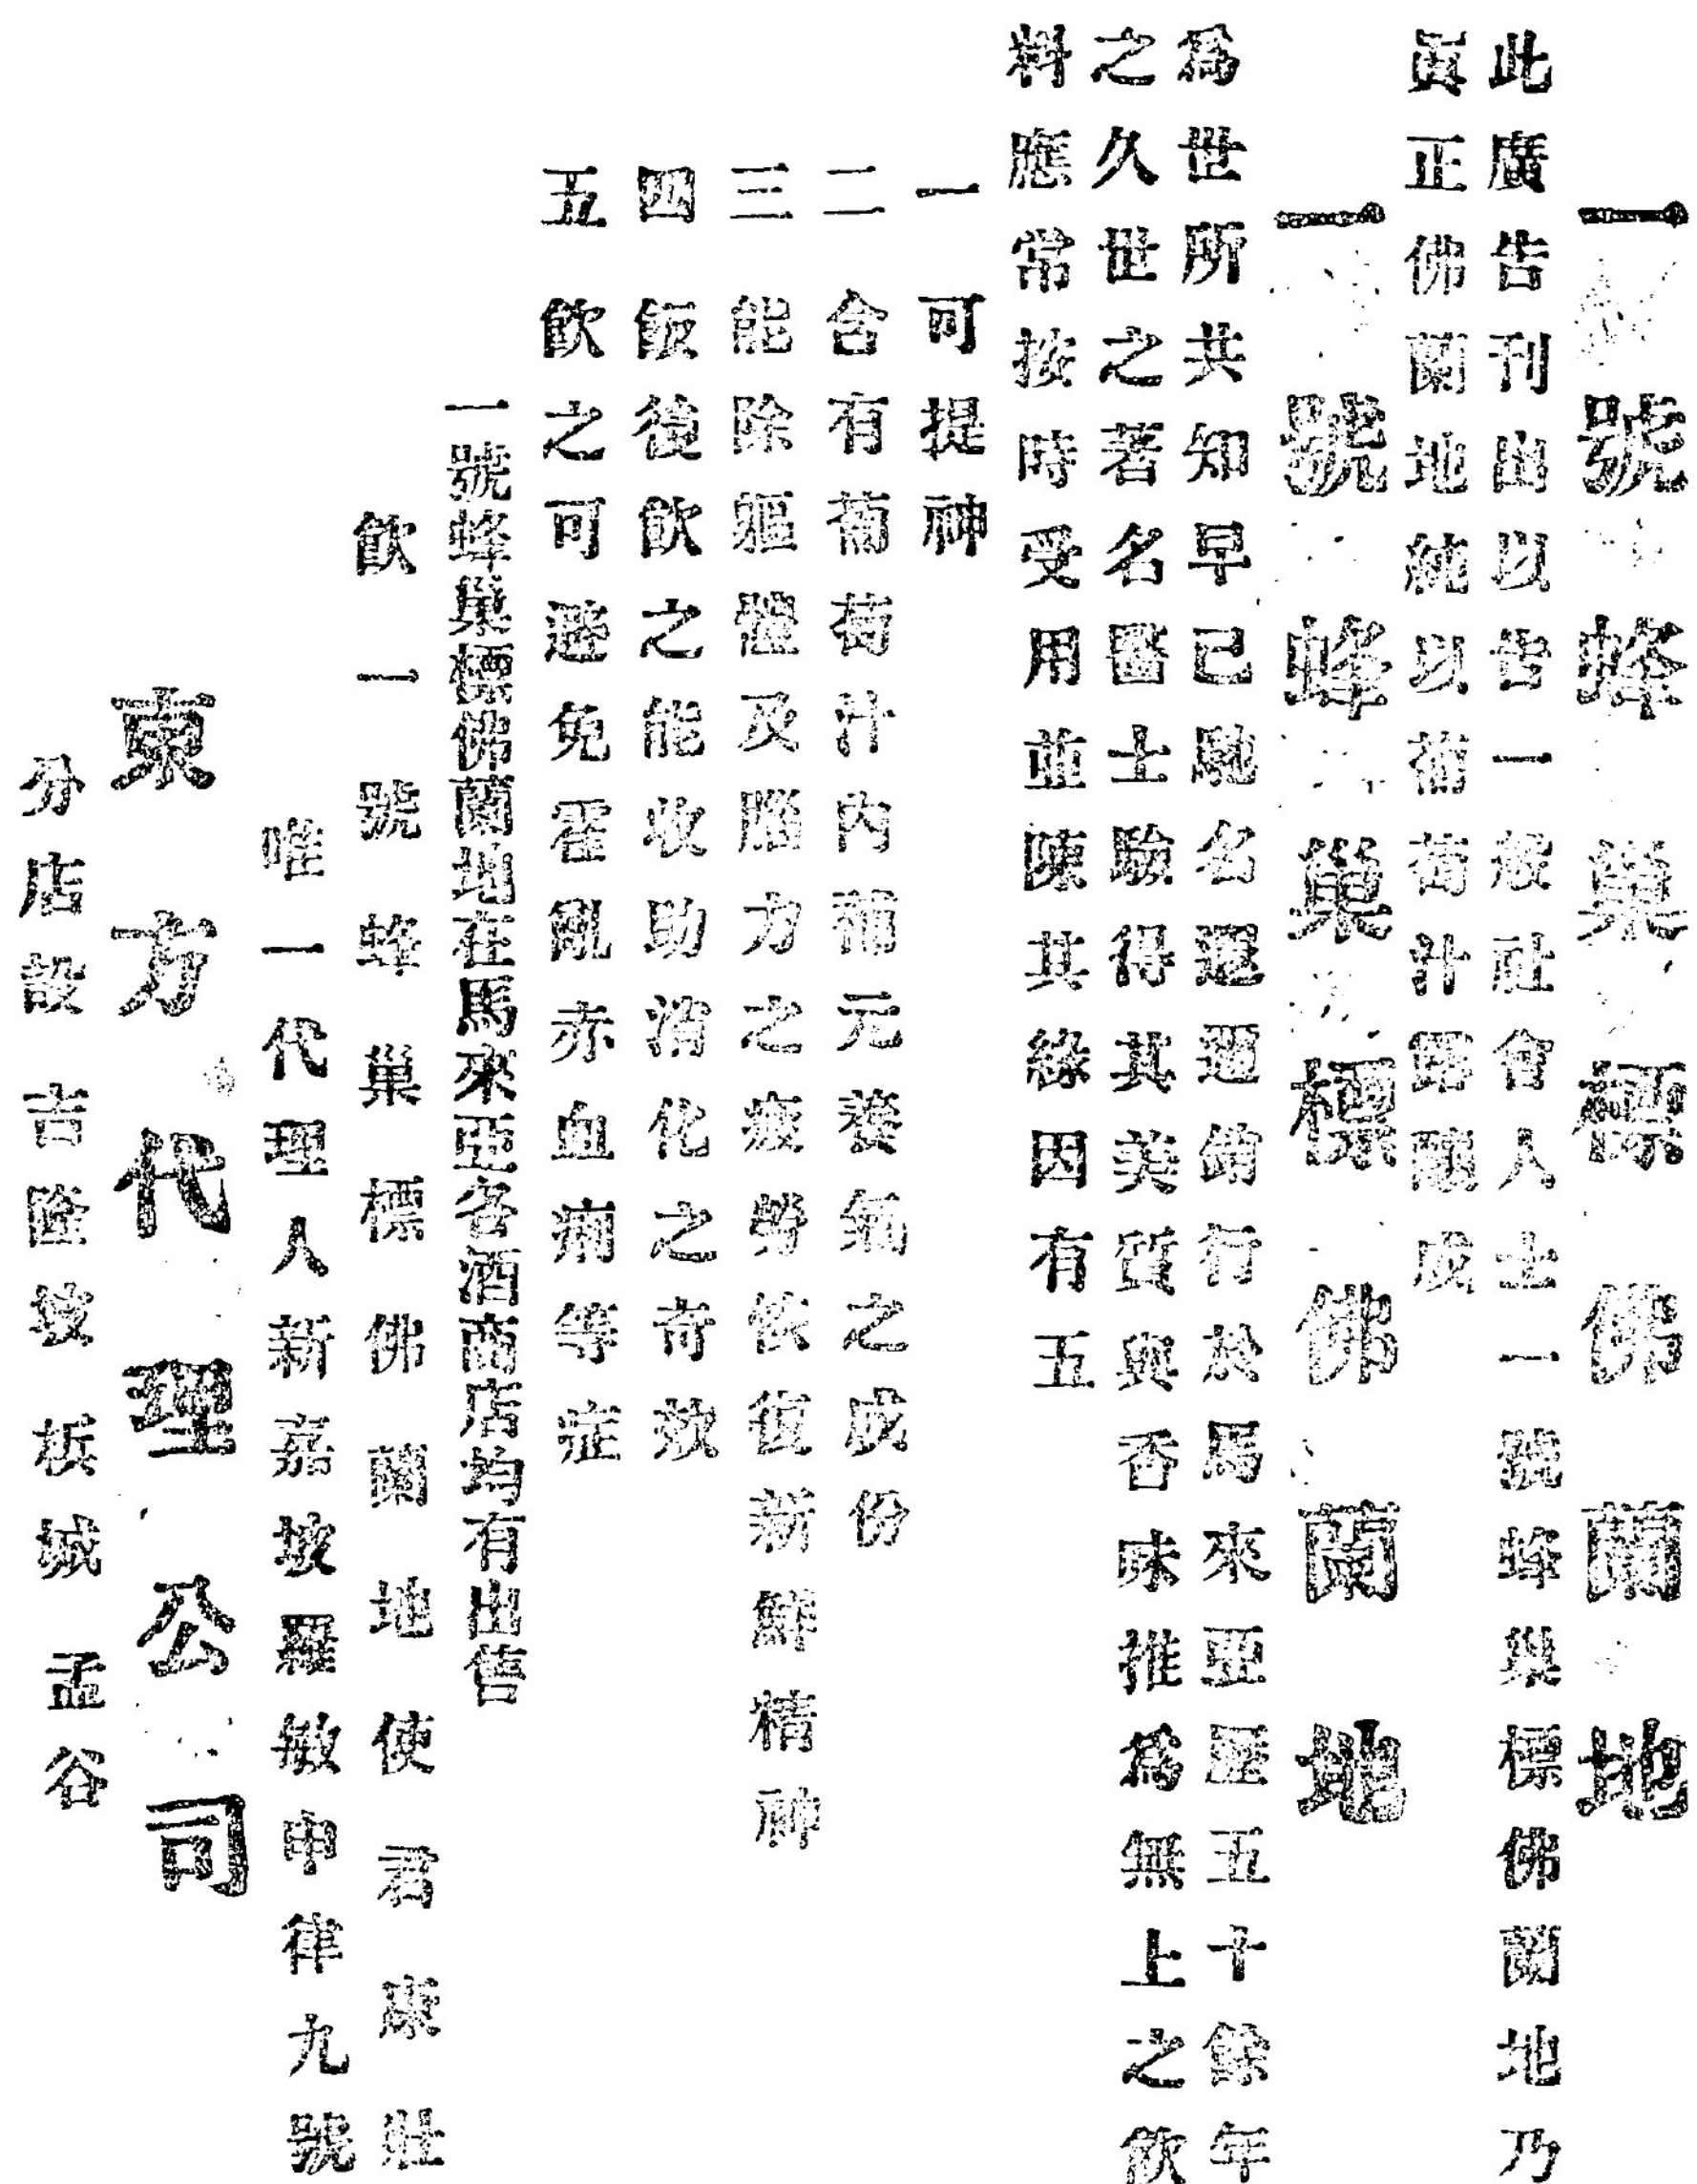 一號蜂巢標佛蘭地
此廣告刊出以告一般社會人士一號蜂巢標佛蘭地乃
眞正佛蘭地純以葡萄汁釀成
一號蜂巢標佛蘭地
爲世所共知早已馳名遐邇銷行於馬來亞歷五十餘年
之久世之著名醫士驗得其美質與香味推爲無上之飲
料應常按時受用並陳其緣因有五
一 可提神
二 含有葡萄汁內補元養緬之成份
三 能除軀體及腦力之疲勞恢復新鮮精神
四 飯後飲之能收助消化之奇效
五 飲之可避免霍亂赤血痢等症
一號蜂巢標佛蘭地在馬來亞各酒商店均有出售
飲一號蜂巢標佛蘭地使君康壯
唯一代理人新嘉坡羅敏申律九號
東方代理公司
分店設 吉隆坡 梹城 孟谷